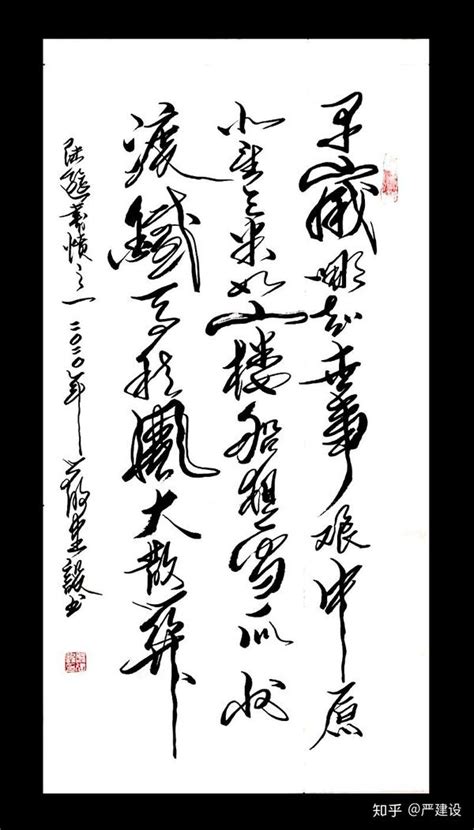 早歲那知世事艰中原
北望氣如山楼船夜雪瓜洲
渡鐵马秋風大散關
陆游書憤之一二〇二〇年严建設书
知乎 @严建设